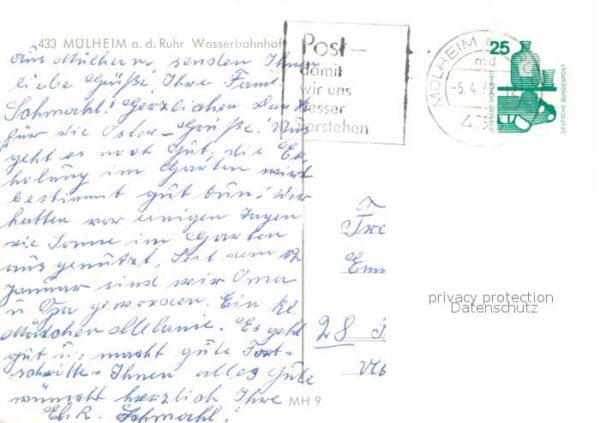 433 MÜLHEIM a. d. Ruhr Wasserbahnhof
Aus Mülheim senden Ihnen
liebe Grüße, Ihre Fam.
Schmahl! Herzlichen Dank
für die Oster-Grüße! Uns
geht es noch gut, die Er-
holung im Garten wird
bestimmt gut tun! Wir
hatten vor einigen Tagen
die Sonne im Garten
ausgenützt. Seit dem
Januar sind wir Oma
u. Opa geworden. Ein kl.
Mädchen Melanie. Es geht
gut u. macht gute Fort-
schritte. Ihnen alles Gute
wünscht herzlich Ihre
Schmahl!
Post-
damit
wir uns
besser
verstehen
MÜLHEIM a
-5.4.7
43
25
JEDERZEIT SICHERHEIT
DEUTSCHE BUNDESPOST
F
Fr
Em
28
privacy protection
Datenschutz
MH 9